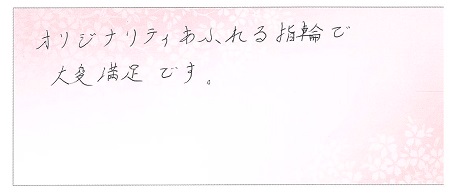 オリジナリティあふれる指輪で
大変満足です。